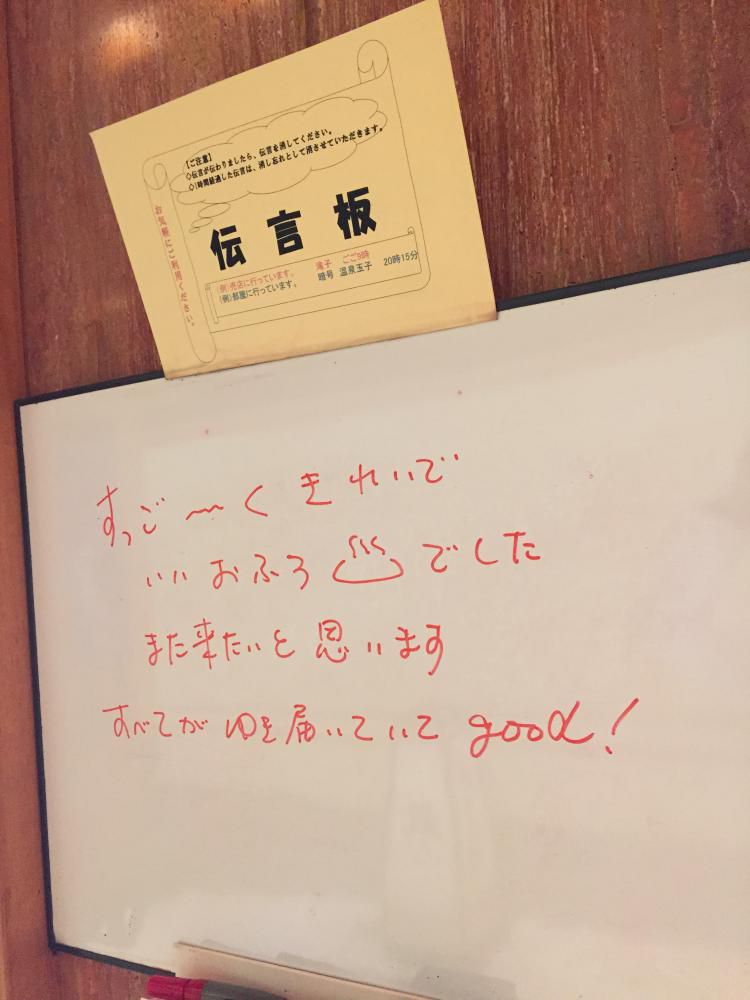 【ご注意】
◇伝言が伝わりましたら、伝言を消してください。
◇1時間経過した伝言は、消し忘れとして消させていただきます。
お気軽にご利用ください。
伝言板
(例)売店に行っています。 滝子 ごご8時
(例)部屋に行っています。 暗号 温泉玉子 20時15分
すっご〜く きれいで
いい おふろ ♨ でした
また来たいと思います
すべてが ゆき届いていて good!